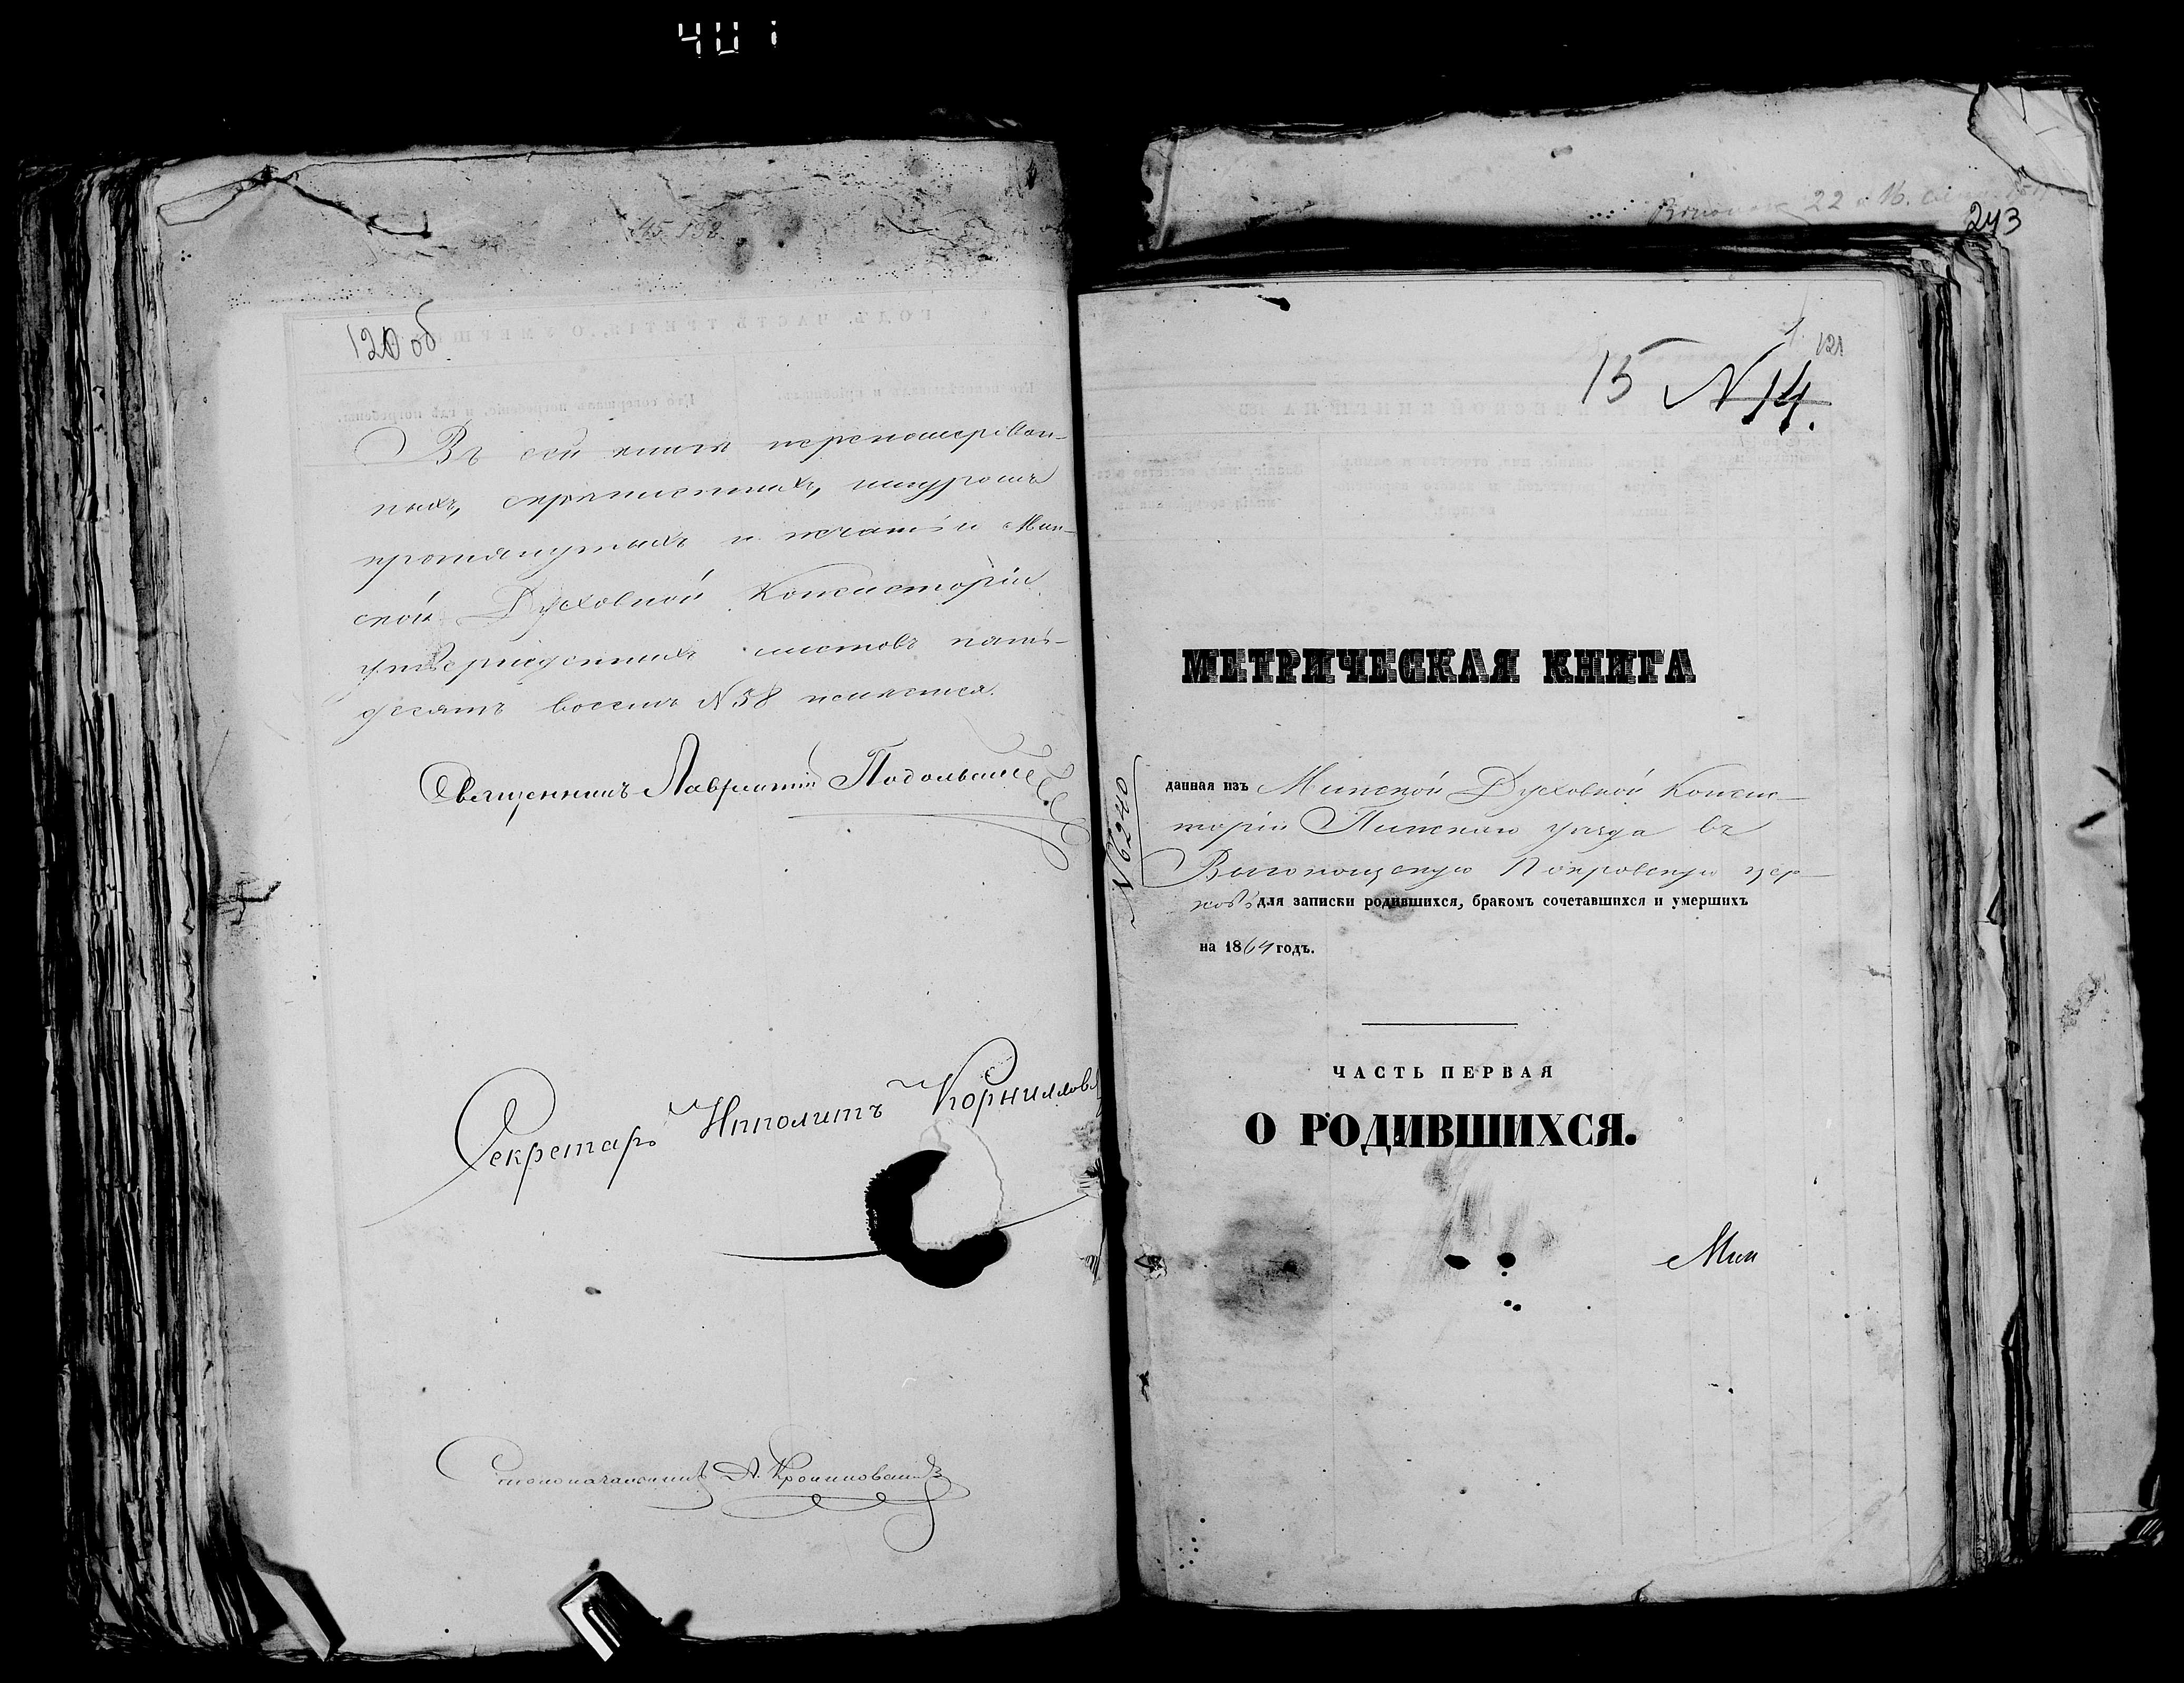 120 об
Въ сей книгѣ перенумерован-
ныхъ, скрѣпленныхъ, шнуромъ
протянутыхъ и печатью Мин-
ской Духовной Консисторіи
утвержденныхъ листовъ пять-
десятъ восемь N 58 имѣется.
Священникъ Лаврентій
Секретарь Ипполитъ Корниллов
Столоначальникъ А.
22 16.
243
1.
121
15 N 14.
МЕТРИЧЕСКАЯ КНИГА
данная изъ Минской Духовной Консис-
торіи Пинскаго уѣзда въ
Выгонощскую Покровскую цер-
ковь для записки родившихся, бракомъ сочетавшихся и умершихъ
на 1864 годъ.
N 6240
ЧАСТЬ ПЕРВАЯ
О РОДИВШИХСЯ.
Мин